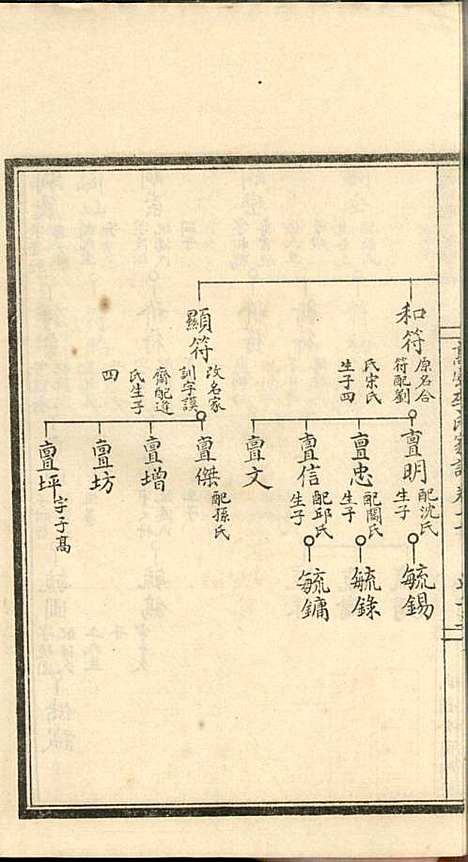 和符
原名合
符配劉
氏宋氏
生子四
亶明
配沈氏
生子
毓錫
亶忠
配關氏
生子
毓錄
亶信
配邱氏
生子
毓鏞
亶文
顯符
改名家
訓字謨
齋配逄
氏生子
四
亶傑
配孫氏
亶增
亶坊
亶坪
字子高